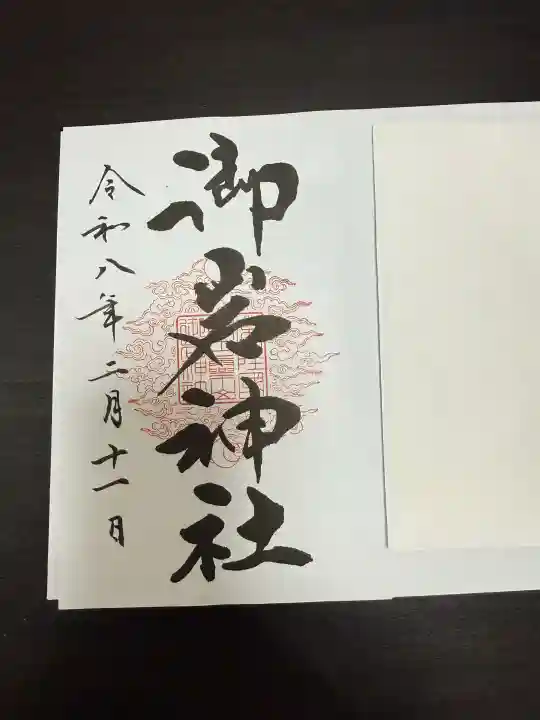 御岩神社
令和八年二月十一日